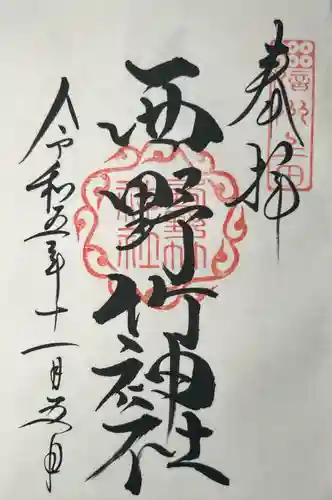 奉拝
西野竹神社
令和五年十一月五日